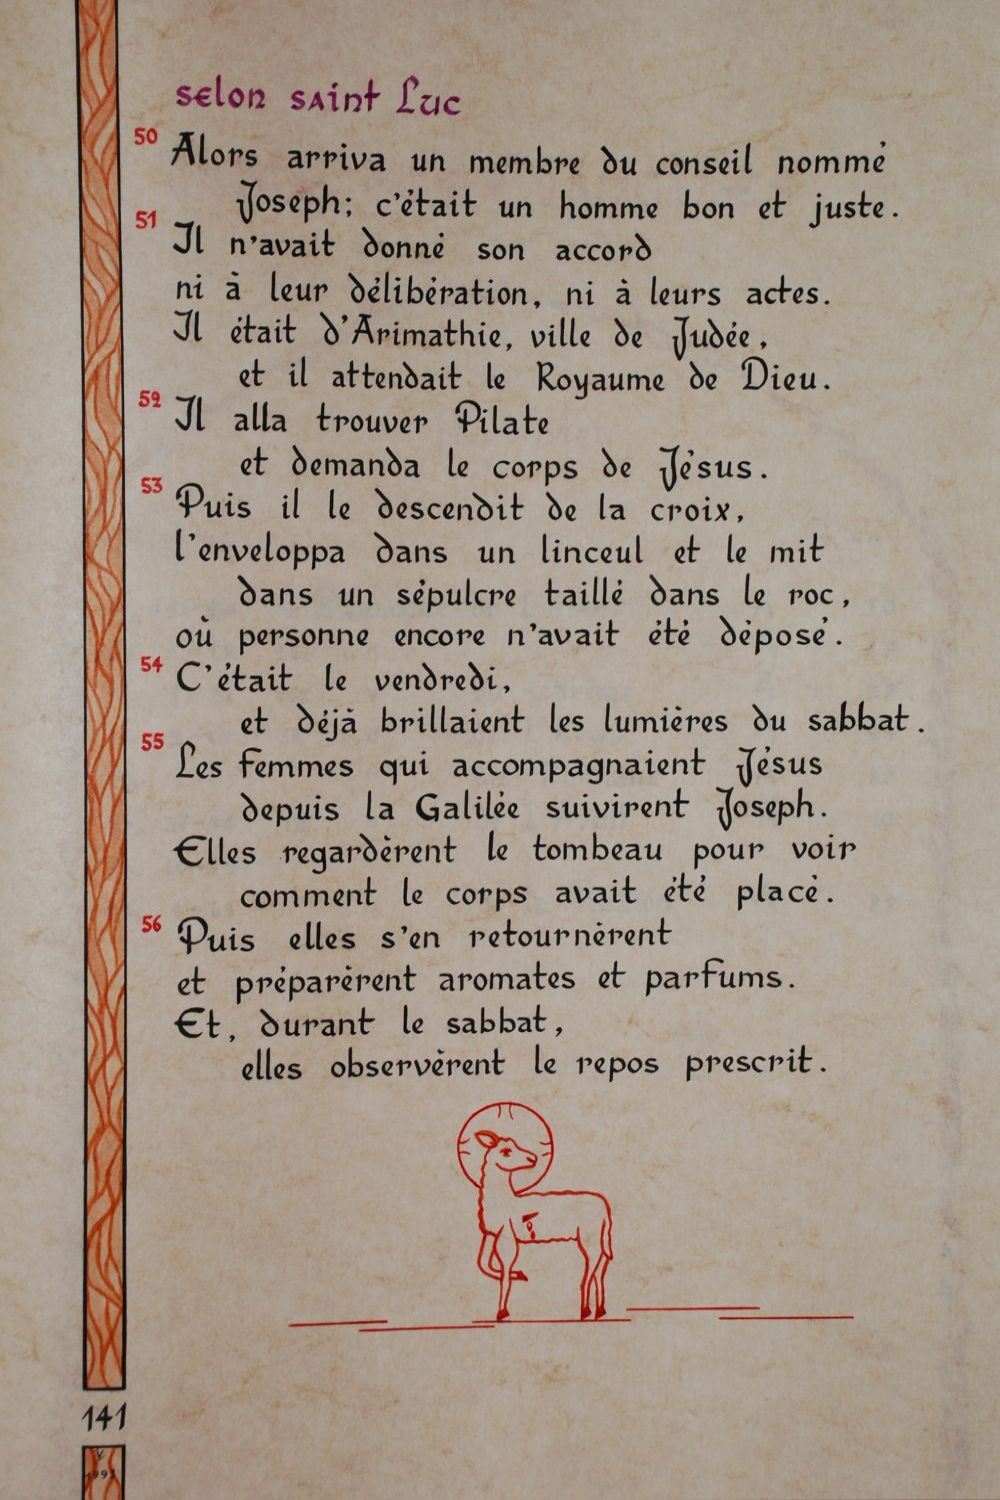 selon saint Luc
50
Alors arriva un membre du conseil nommé
Joseph; c'était un homme bon et juste.
51
Il n'avait donné son accord
ni à leur délibération, ni à leurs actes.
Il était d'Arimathie, ville de Judée,
et il attendait le Royaume de Dieu.
52
Il alla trouver Pilate
et demanda le corps de Jésus.
53
Puis il le descendit de la croix,
l'enveloppa dans un linceul et le mit
dans un sépulcre taillé dans le roc,
où personne encore n'avait été déposé.
54
C'était le vendredi,
et déjà brillaient les lumières du sabbat.
55
Les femmes qui accompagnaient Jésus
depuis la Galilée suivirent Joseph.
Elles regardèrent le tombeau pour voir
comment le corps avait été placé.
56
Puis elles s'en retournèrent
et préparèrent aromates et parfums.
Et, durant le sabbat,
elles observèrent le repos prescrit.
141